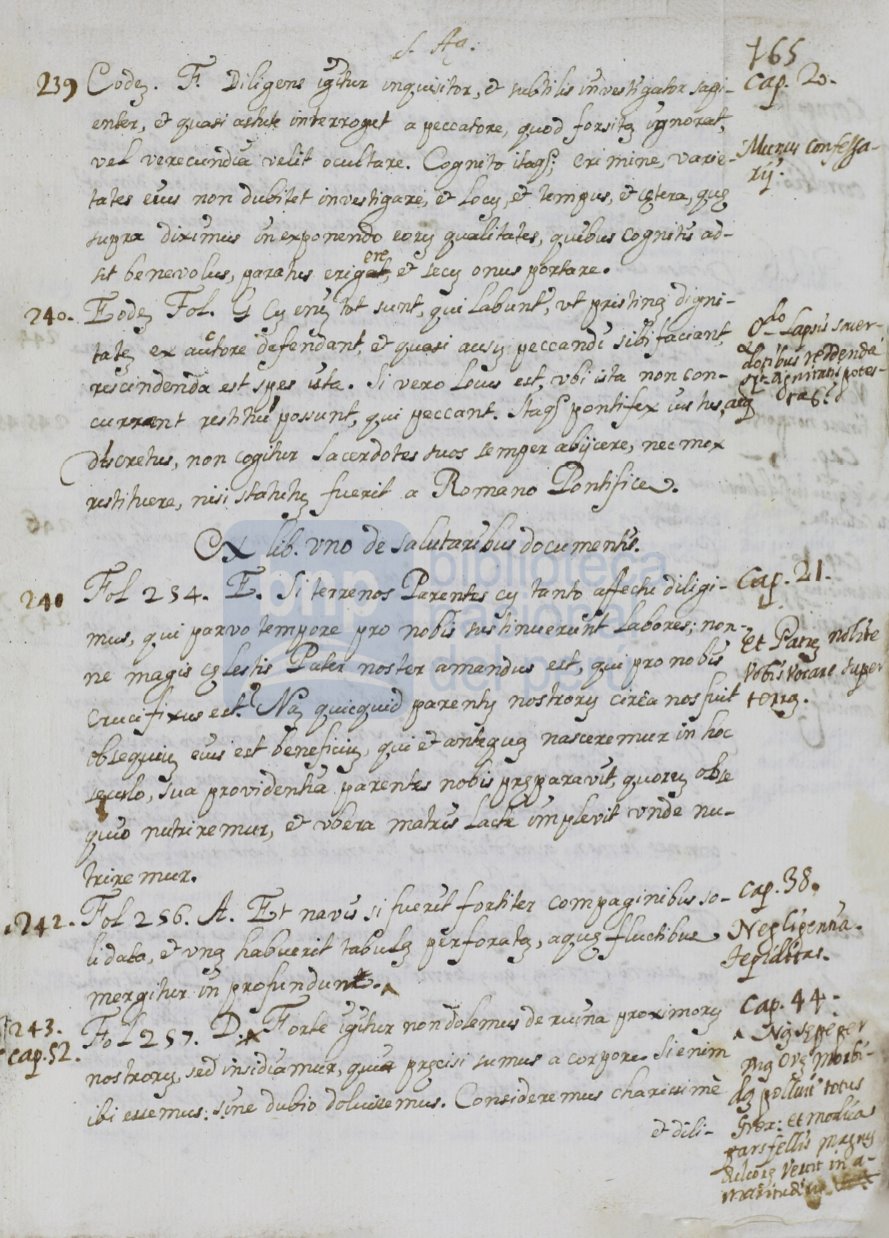 S. Ag.
165
239 Codẽ. F. Diligens igitur inquisitor, et subtilis investigator sapi-
enter, et quasi astute interroget a peccatore, quod forsitã ignorat,
vel verecundia velit ocultare. Cognito itaq; crimine, varie-
tates eius non dubitet investigare, et locũ, et tempus, et cętera, quę
supra diximus in exponendo eorũ qualitates, quibus cognitis ad-
sit benevolus, paratus erigere, et secũ onus portare.
Cap. 20.
Munus confessa-
rij.
240. Eodẽ Fol. G Cũ enĩ tot sunt, qui labunt, ut pristinã digni-
tatẽ ex auctore defendant, et quasi ausũ peccandi sibi faciant,
rescindenda est spes ista. Si vero locus est, ubi ista non con-
currunt restitui possunt, qui peccant. Itaq; pontifex iustus, atq
discretus, non cogitur sacerdotes suos semper abijcere, nec mox
restituere, nisi statutũ fuerit a Romano Pontifice.
lapsis sacer-
dotibus reddenda
sit dignitatis potes-
Ex lib. uno de salutaribus documentis.
240 Fol 254. E. Si terrenos Parentes cũ tanto affectu diligi-
mus, qui parvo tempore pro nobis sustinuerunt labores; non-
ne magis cęlestis Pater noster amandus est, qui pro nobis
crucifixus est? Nã quicquid parentũ nostrorũ circa nos fuit
obsequiũ eius est beneficiũ, qui et antequã nasceremur in hoc
seculo, sua providentia parentes nobis pręparavit, quorũ obse
quio nutriremur, et ubera matris lacte implevit unde nu-
triremur.
Cap. 21.
Et Patrẽ nolite
vobis vocare super
terrã.
242. Fol 256. A. Et navis si fuerit fortiter compaginibus so-
lidata, et unã habuerit tabulã perforatã, aquę fluctibus
mergitur in profundum.
cap. 38.
Negligentia.
tepiditas.
243. Fol 257. D. Forte igitur non dolemus de ruina proximorũ
cap. 52. nostrorũ, sed insidiamur, quia pręcisi sumus a corpore. Si enim
ibi essemus: sine dubio doluissemus. Consideremus charissime
et dili-
cap. 44.
Nã sępe per
unã ovẽ morbi-
dã polluit totus
grex: et modica
pars fellis magnũ
dulcorẽ vertit in a-
maritudinẽ